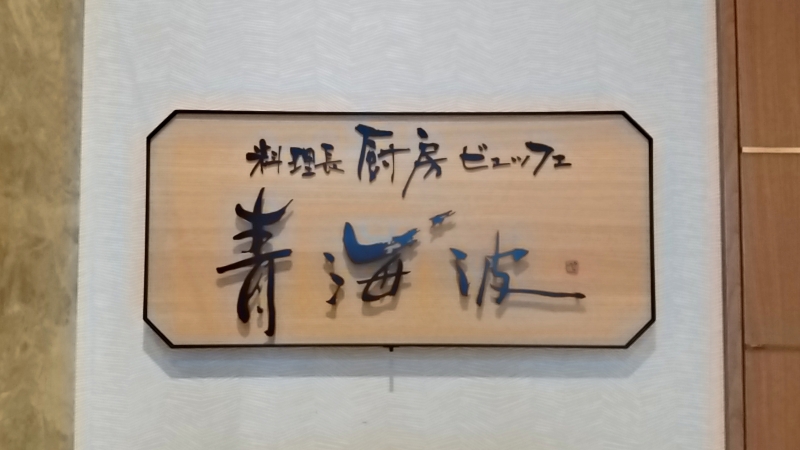 料理長 厨房 ビュッフェ
青海波